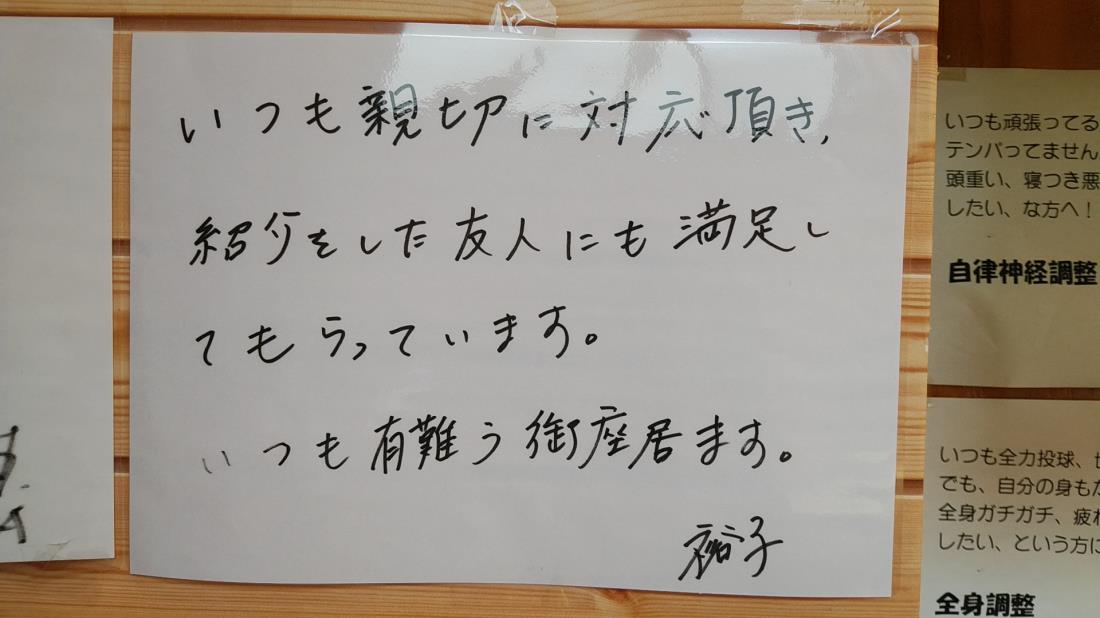 いつも親切に対応頂き、
紹介をした友人にも満足し
てもらっています。
いつも有難う御座居ます。
裕子
いつも頑張ってる
テンパってません
頭重い、寝つき悪
したい、な方へ！
自律神経調整
いつも全力投球、
でも、自分の身も
全身ガチガチ、疲
したい、という方に
全身調整